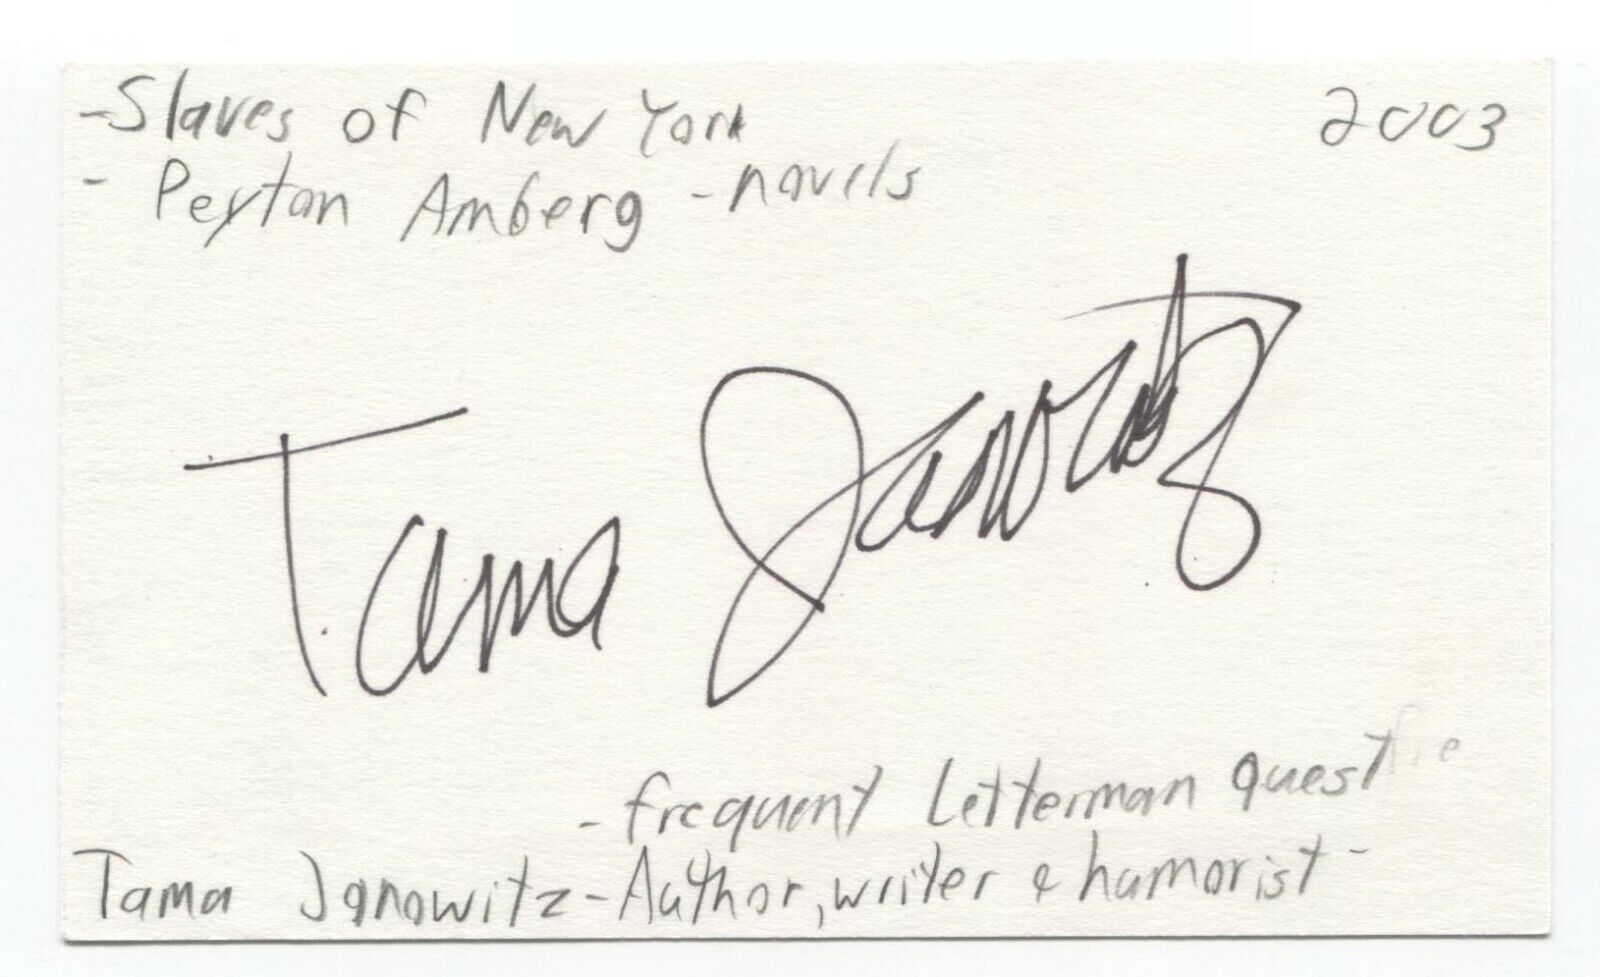 -Slaves of New York
2003
- Peyton Amberg - novels
Tama Janowitz
- frequent Letterman guest
Tama Janowitz - Author, writer & humorist -